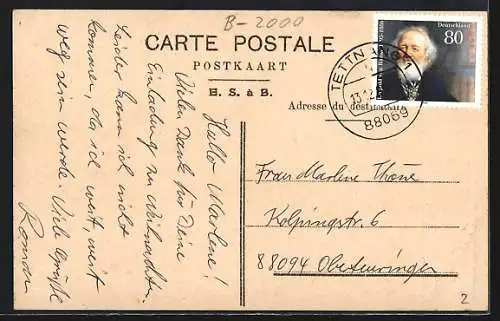 B-2000
CARTE POSTALE
POSTKAART
H. S. à B.
Adresse du destinataire
Deutschland
80
TETTNANG
88069
Hallo Marlene!
Vielen Dank für Deine
Einladung zu Weihnachten.
Leider kann ich nicht
kommen, da ich weit, weit
weg sein werde. Viele Grüße
Roman
Frau Marlene Thöne
Kolpingstr. 6
88094 Oberteuringen
2